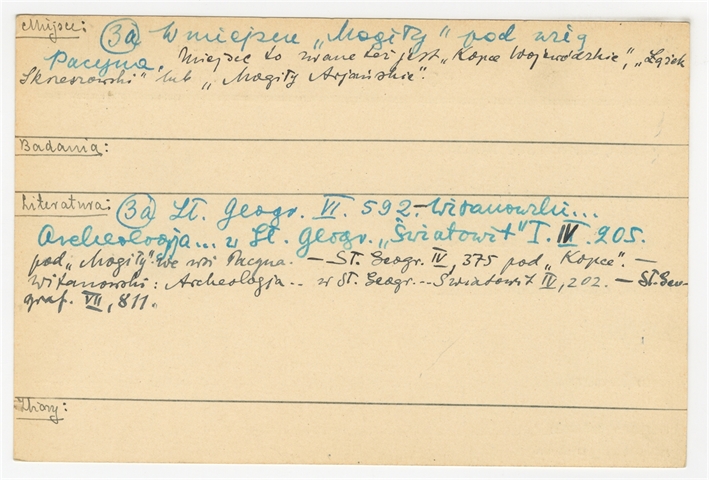 Miejsce: (3a) W miejscu „Mogiły” pod wsią
Pacyna. Miejsce to zwane też jest „Kopce Wojewódzkie”, „Łęick
Skrzeszewski” lub „Mogiły Arjańskie”.
Badania:
Literatura: (3a) St. Geogr. VI. 592.–Witanowski...
Archeologja... w St. Geogr. „Światowit” T. IV. 205.
pod „Mogiły” we wsi Pacyna. – St. Geogr. IV, 375 pod „Kopce”. –
Witanowski: Archeologja .. w St. Geogr. – Światowit IV, 202. – St. Geo-
graf. VII, 811.
Zbiory: